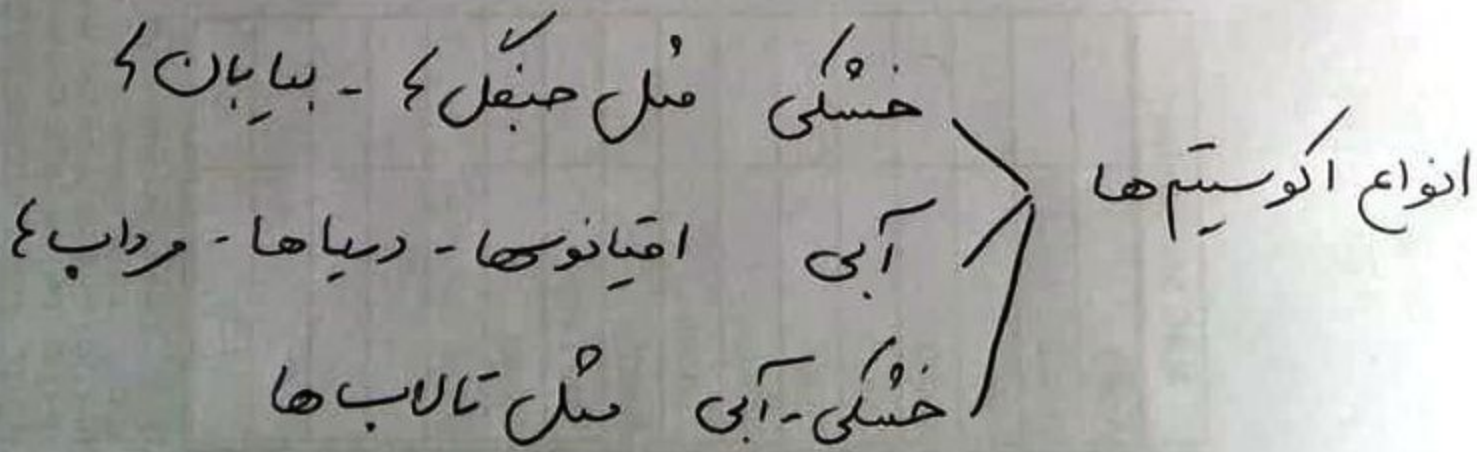 انواع اکوسیتم ها
خشکی مثل جنگل ها - بیابان ها
آبی اقیانوسها - دریاها - مرداب ها
خشکی - آبی مثل تالاب ها